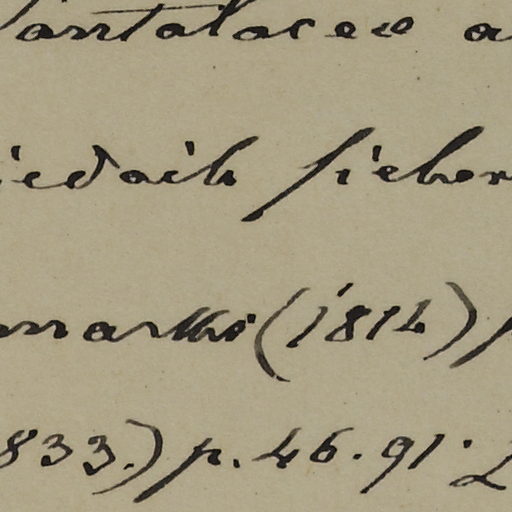 Santalaceæ a
iedrich sieber
marks (1814) p
833.) p. 46. 91.